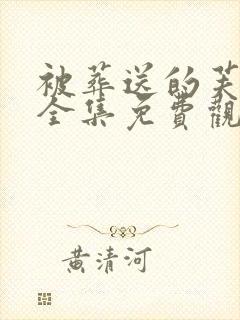 被葬送的芙
全集免費觀
黃清河